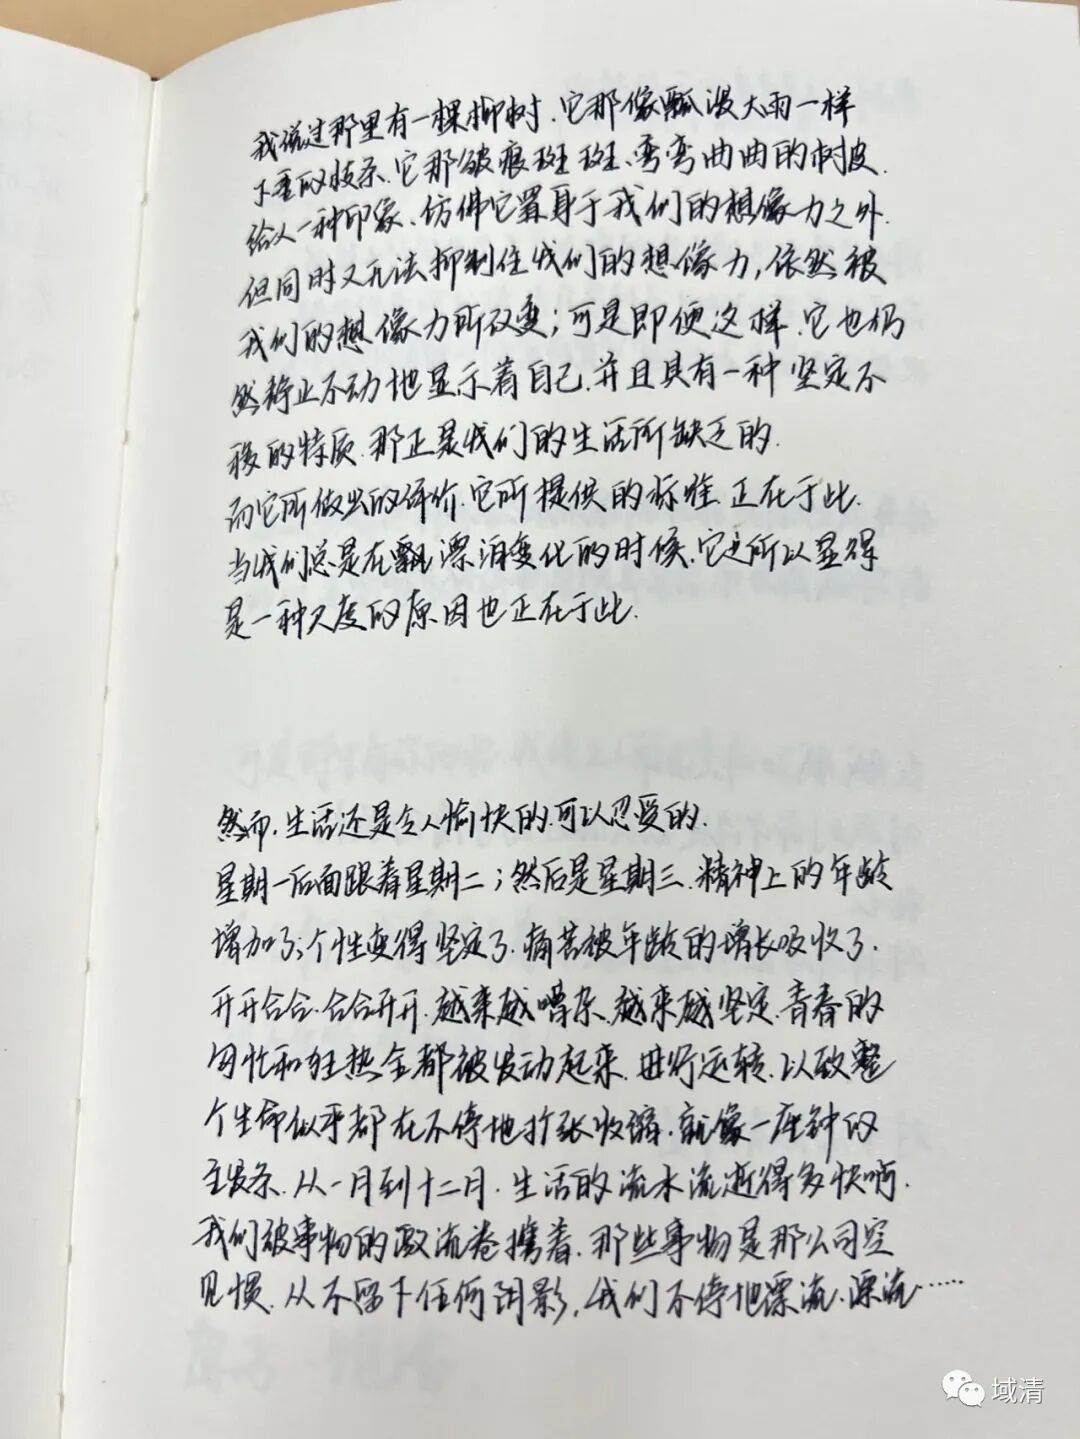 我说过那里有一棵柳树.它那像瓢泼大雨一样
下垂的枝条.它那皱痕斑斑、弯弯曲曲的树皮.
给人一种印象、仿佛它置身于我们的想像力之外.
但同时又无法抑制住我们的想像力,依然被
我们的想像力所改变;可是即便这样.它也仍
然静止不动地显示着自己.并且具有一种坚定不
移的特质.那正是我们的生活所缺乏的.
而它所做出的评价.它所提供的标准.正在于此.
当我们总是在飘漂泊变化的时候.它之所以显得
是一种尺度的原因也正在于此.
然而.生活还是令人愉快的.可以忍受的.
星期一后面跟着星期二;然后是星期三.精神上的年龄
增加了;个性变得坚定了.痛苦被年龄的增长吸收了.
开开合合.合合开开.越来越嘈杂.越来越坚定.青春的
匆忙和狂热全都被发动起来.进行运转.以致整
个生命似乎都在不停地扩张收缩.就像一座钟的
主发条.从一月到十二月.生活的流水流逝得多快啊.
我们被事物的激流卷携着.那些事物是那么司空
见惯.从不留下任何阴影,我们不停地漂流.漂流……
域清